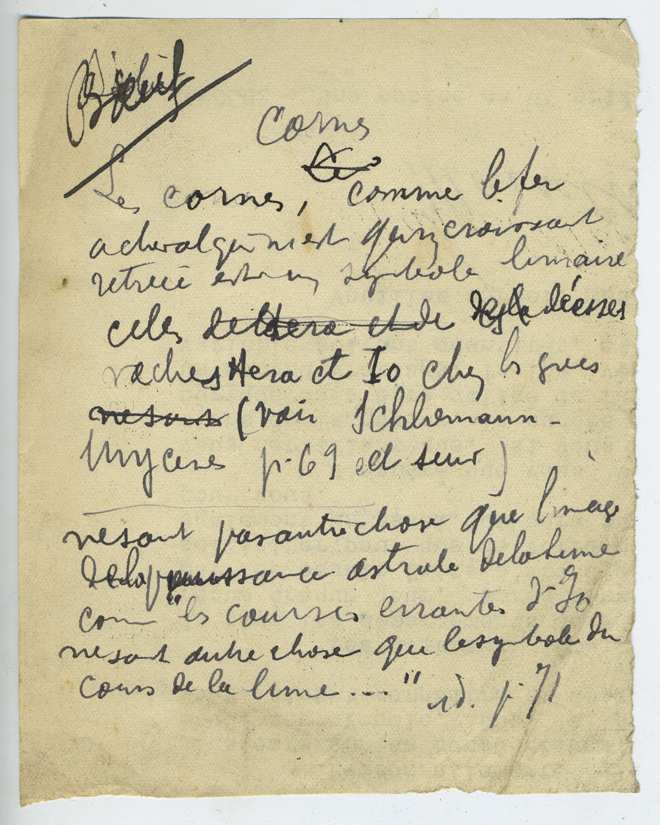 Cornes
Les cornes, comme le fer
a cheval qui n'est qu'un croissant
retreci est un symbole lunaire
celes de Hera et de des déesses
vaches Hera et Io chez les grecs
ne sont (voir Schliemann -
Mycenes p. 69 et suiv)
ne sont pas autre chose que l'image
de la puissance astrale de la lune
comm "les courses errantes d'Io
ne sont autre chose que le symbole du
cours de la lune...." id. p. 71